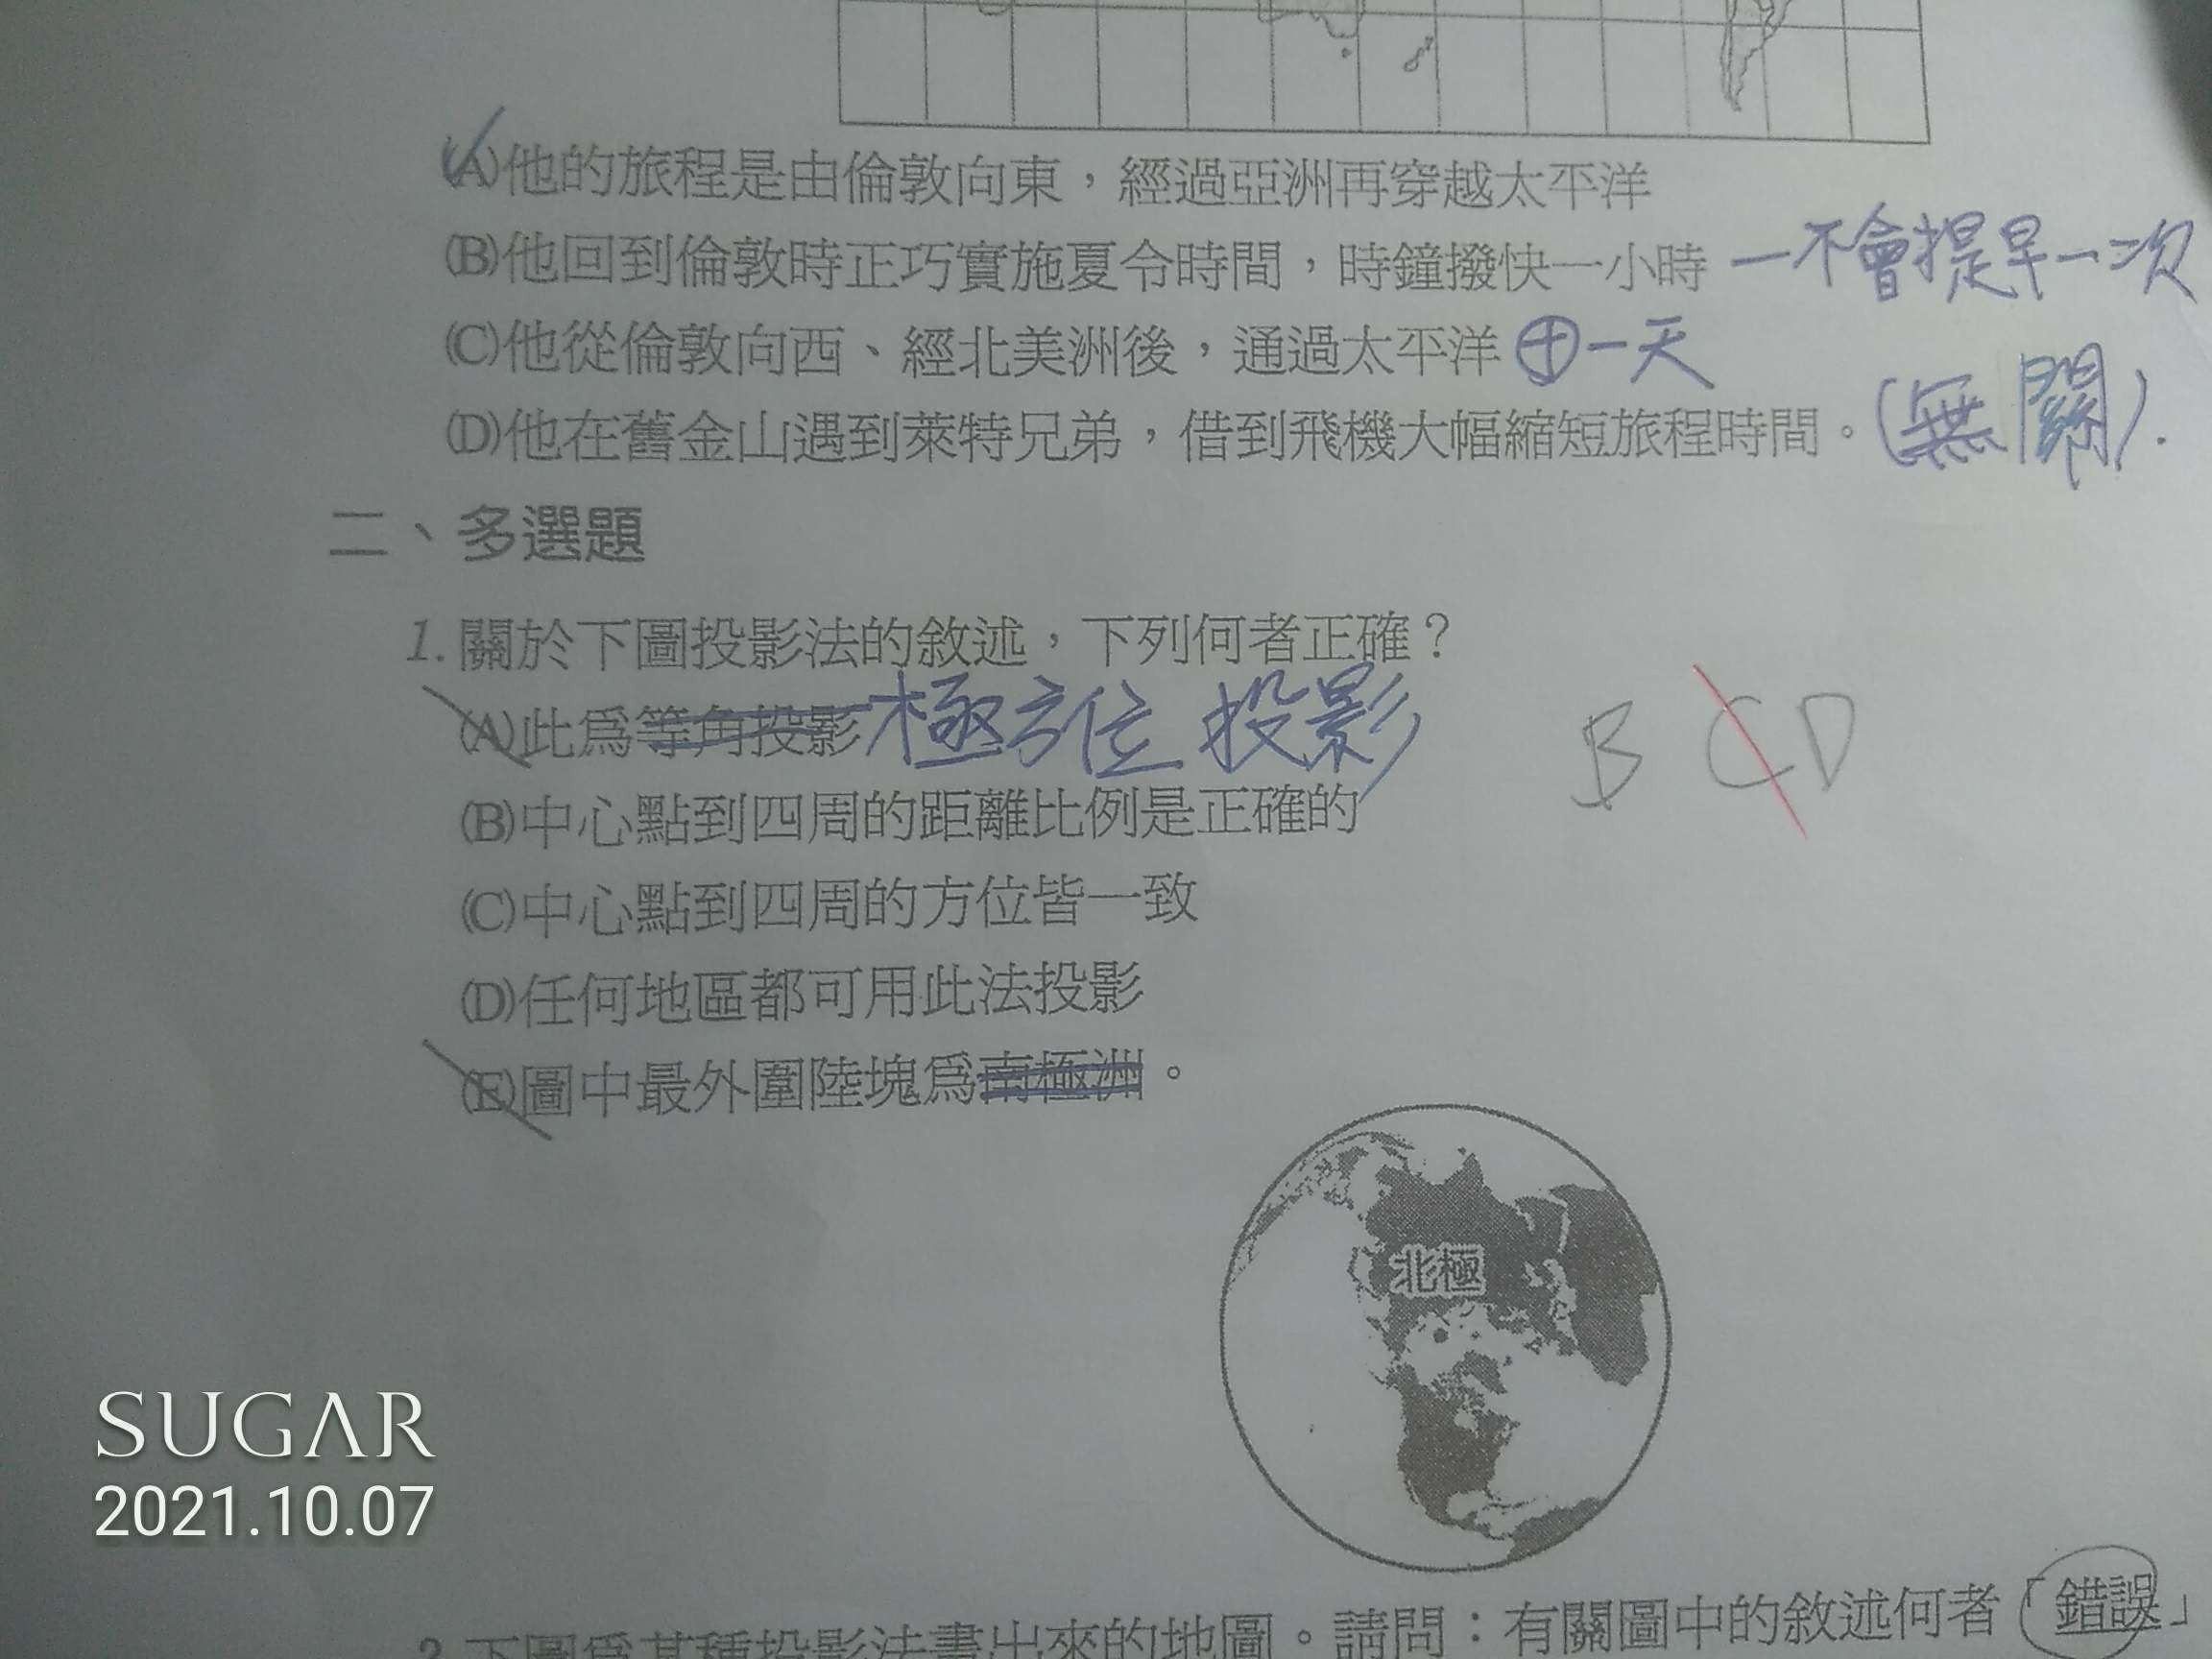 (A)他的旅程是由倫敦向東，經過亞洲再穿越太平洋
(B)他回到倫敦時正巧實施夏令時間，時鐘撥快一小時 一不會提早一次
(C)他從倫敦向西、經北美洲後，通過太平洋 ⊕一天
(D)他在舊金山遇到萊特兄弟，借到飛機大幅縮短旅程時間。(無關).
二、多選題
1.關於下圖投影法的敘述，下列何者正確？
(A)此為等角投影 極方位投影
B C D
(B)中心點到四周的距離比例是正確的
(C)中心點到四周的方位皆一致
(D)任何地區都可用此法投影
(E)圖中最外圍陸塊為南極洲。
北極
SUGAR
2021.10.07
2.下圖為某種投影法畫出來的地圖。請問：有關圖中的敘述何者「錯誤」